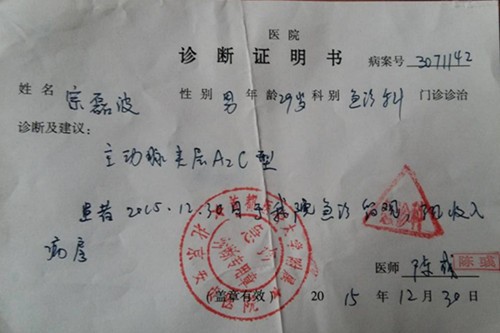 医院
诊断证明书
病案号 3071142
姓名 宗磊波 性别 男 年龄 29岁 科别 急诊科 门诊诊治
诊断及建议：
主动脉夹层A2C型
患者2015.12.30日于我院急诊留观，收入
病房
诊断专用章
医师 陈
(盖章有效) 2015年12月30日